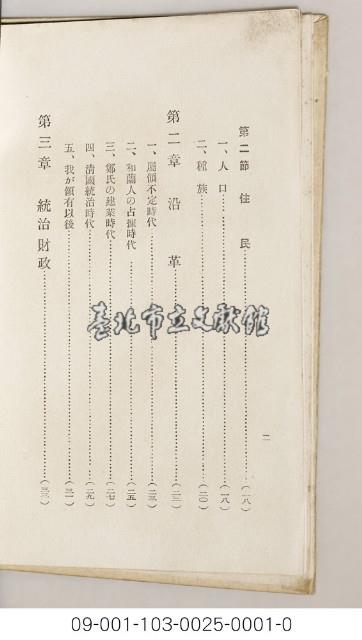 第二節 住民……(一八)
一、人口……(一八)
二、種族……(二〇)
第二章 沿革……(二三)
一、屬領不定時代……(二三)
二、和蘭人の占據時代……(二五)
三、鄭氏の建業時代……(二七)
四、淸國統治時代……(二九)
五、我が領有以後……(三一)
第三章 統治財政……(三三)
二
臺北市立文獻館
09-001-103-0025-0001-0